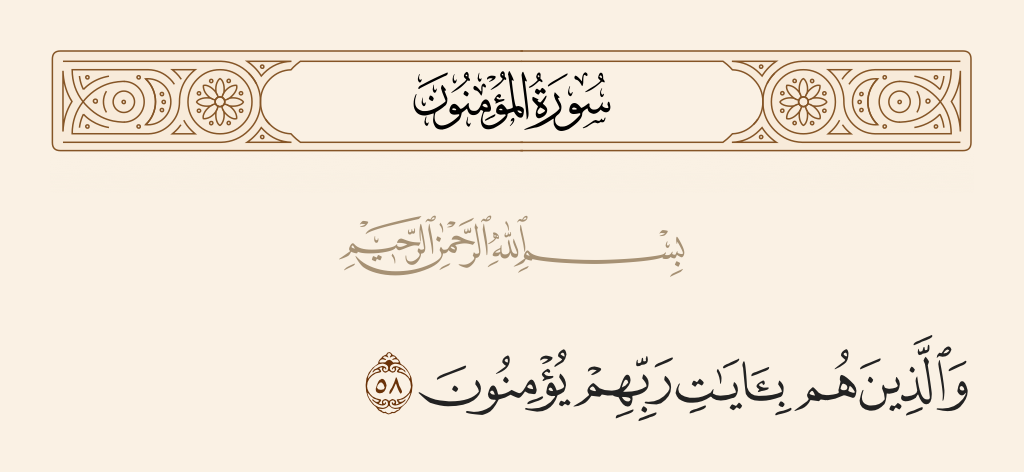 سُورَةُ المُؤْمِنُونَ
بِسْمِ ٱللَّهِ ٱلرَّحْمَٰنِ ٱلرَّحِيمِ
وَٱلَّذِينَ هُم بِـَٔايَـٰتِ رَبِّهِمْ يُؤْمِنُونَ ٥٨